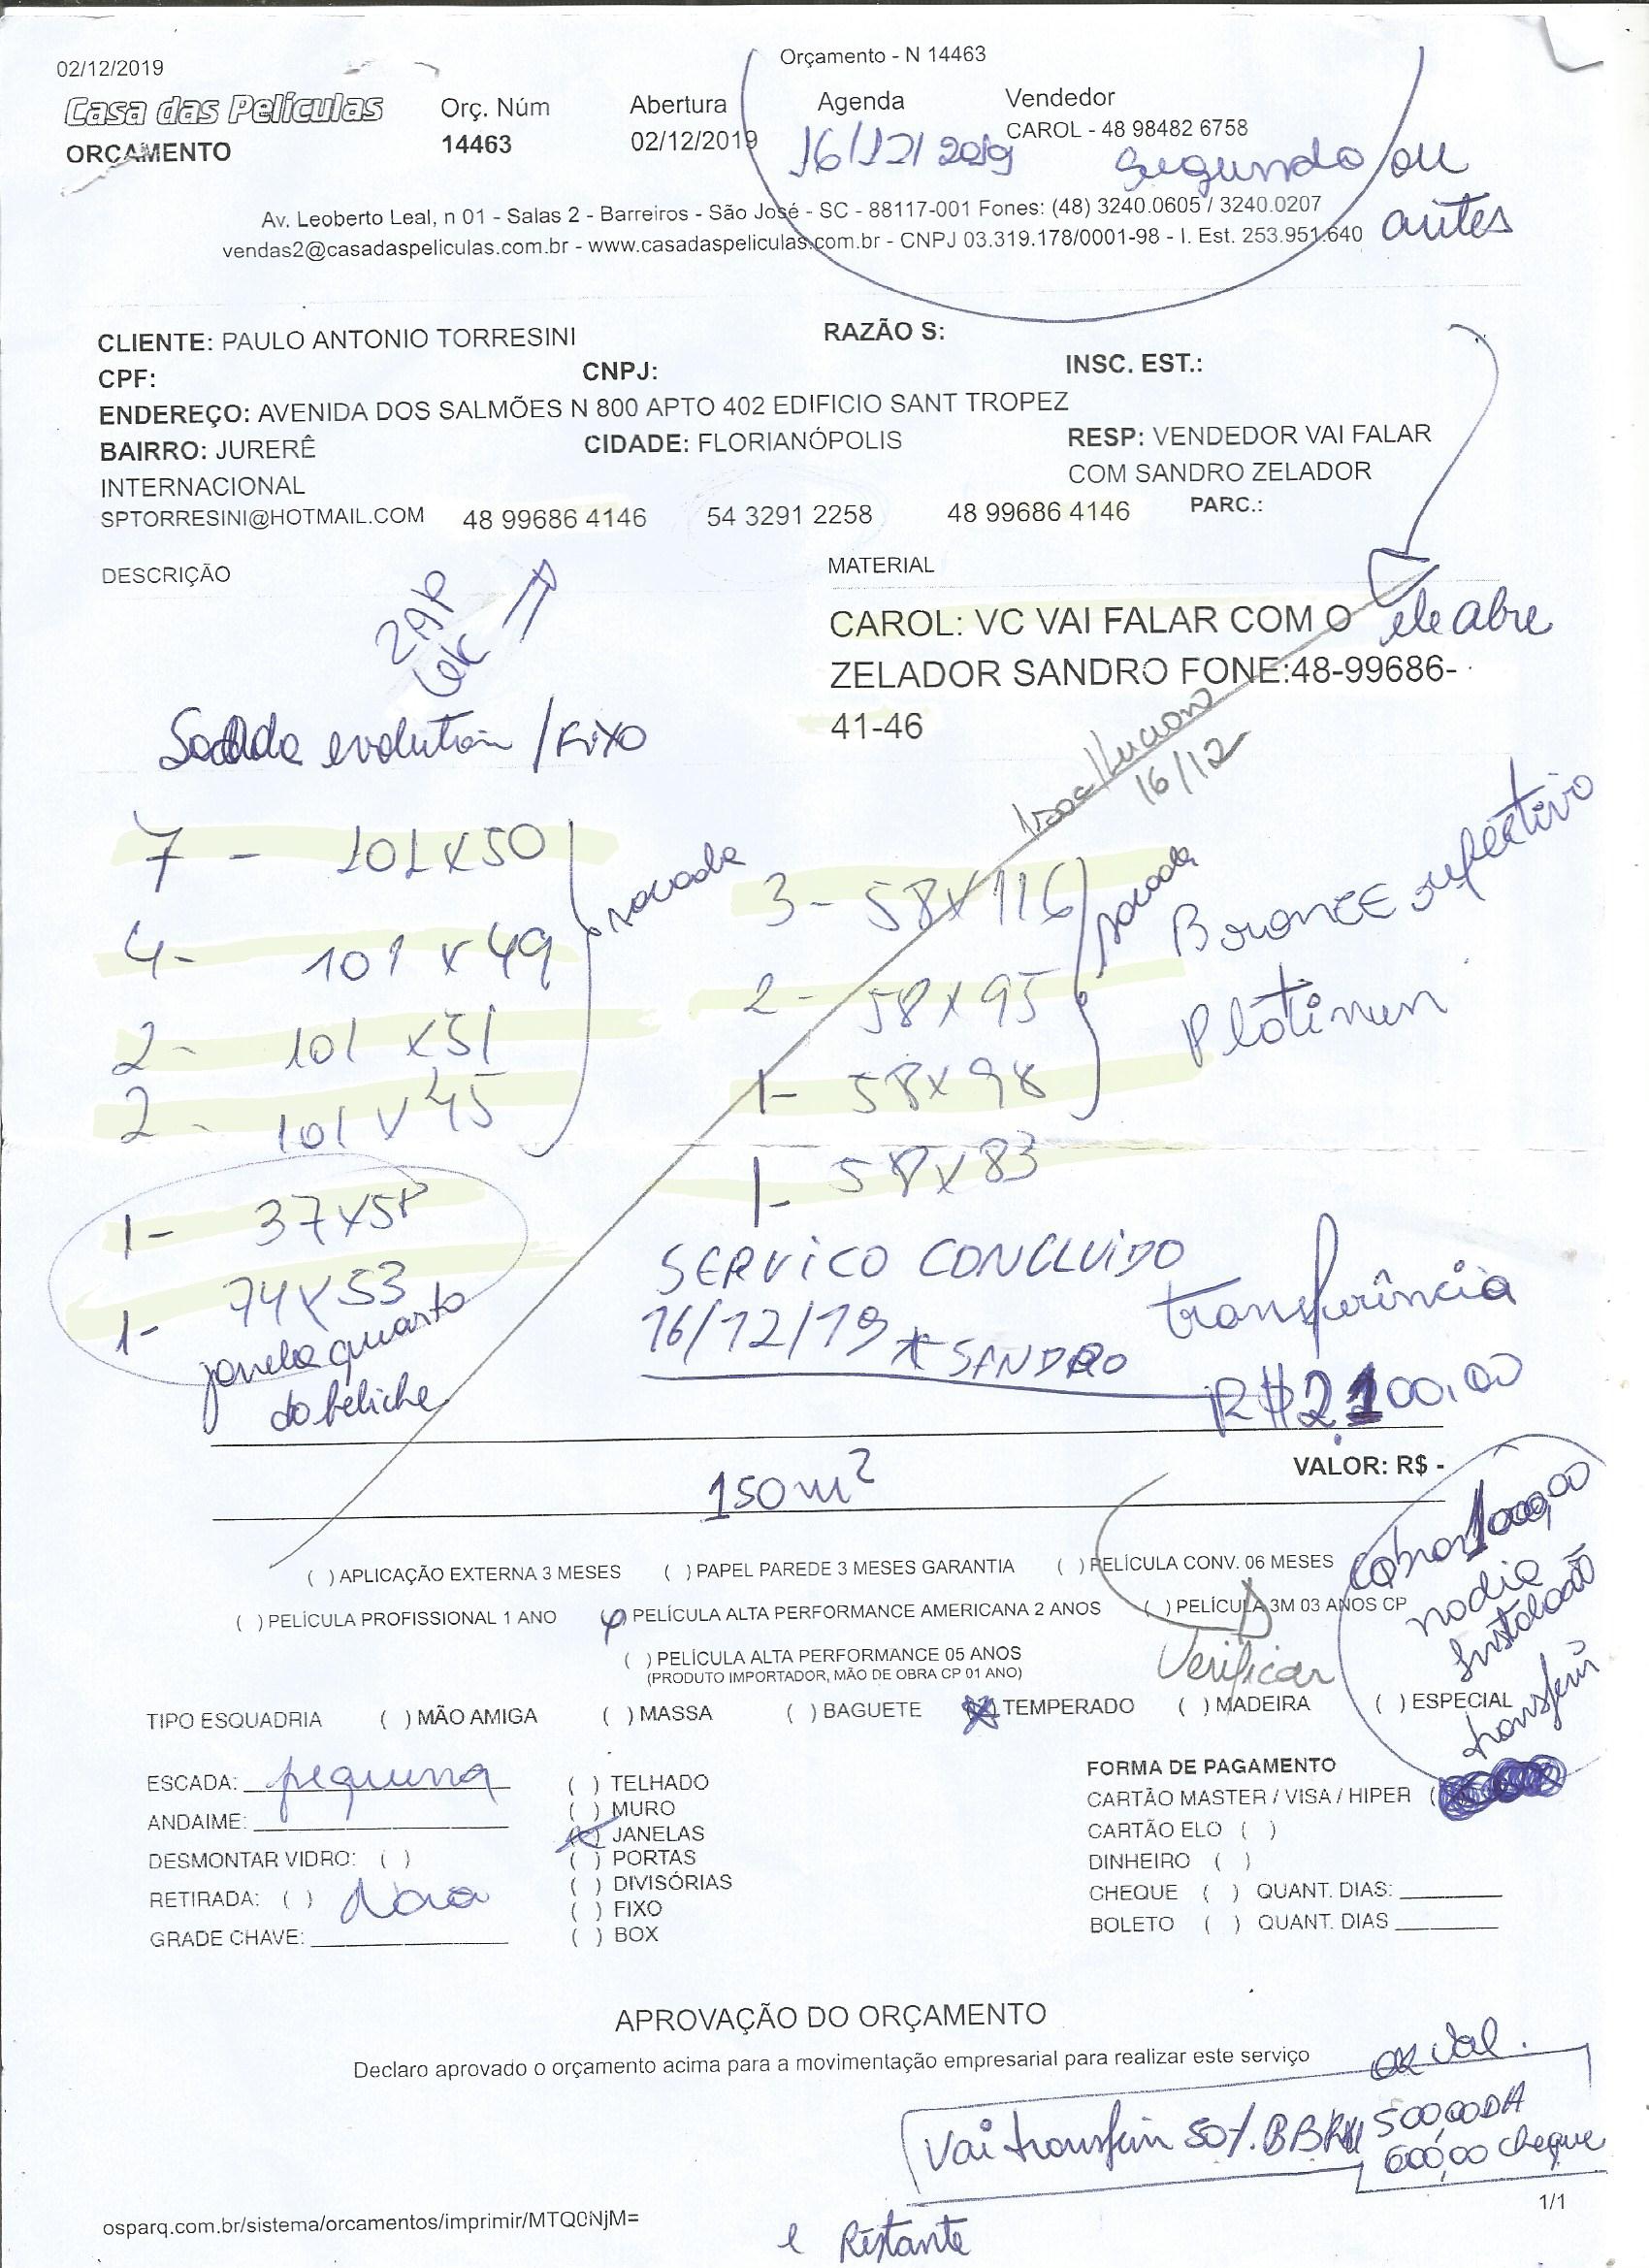 Orçamento - N 14463
02/12/2019
Casa das Películas
ORÇAMENTO
Orç. Núm
14463
Abertura
02/12/2019
Agenda
16/12/2019
Vendedor
CAROL - 48 98482 6758
segundo/ou
antes
Av. Leoberto Leal, n 01 - Salas 2 - Barreiros - São José - SC - 88117-001 Fones: (48) 3240.0605 / 3240.0207
vendas2@casadaspeliculas.com.br - www.casadaspeliculas.com.br - CNPJ 03.319.178/0001-98 - I. Est. 253.951.640
CLIENTE: PAULO ANTONIO TORRESINI RAZÃO S:
CPF: CNPJ: INSC. EST.:
ENDEREÇO: AVENIDA DOS SALMÕES N 800 APTO 402 EDIFICIO SANT TROPEZ
BAIRRO: JURERÊ INTERNACIONAL
CIDADE: FLORIANÓPOLIS
RESP: VENDEDOR VAI FALAR
COM SANDRO ZELADOR
SPTORRESINI@HOTMAIL.COM 48 99686 4146 54 3291 2258 48 99686 4146 PARC.:
DESCRIÇÃO
MATERIAL
CAROL: VC VAI FALAR COM O
ZELADOR SANDRO FONE:48-99686-
41-46
ele abre
evolution / Fixo
16/12
7 - 101x50
4 - 101x49
2 - 101x51
2 - 101x45
sacada
1 - 37x58
1 - 74x53
janela quarto
do beliche
3 - 58x116
2 - 58x95
1 - 58x98
sacada
1 - 58x83
Bronze reflectivo
Platinum
SERVICO CONCLUIDO
16/12/19 * SANDRO
transferência
R$2100,00
VALOR: R$ -
150m²
( ) APLICAÇÃO EXTERNA 3 MESES ( ) PAPEL PAREDE 3 MESES GARANTIA ( ) PELÍCULA CONV. 06 MESES
( ) PELÍCULA PROFISSIONAL 1 ANO ( ) PELÍCULA ALTA PERFORMANCE AMERICANA 2 ANOS ( ) PELÍCULA 3M 03 ANOS CP
( ) PELÍCULA ALTA PERFORMANCE 05 ANOS
(PRODUTO IMPORTADOR, MÃO DE OBRA CP 01 ANO)
Verificar
no dia
Instalação
TIPO ESQUADRIA ( ) MÃO AMIGA ( ) MASSA ( ) BAGUETE (X) TEMPERADO ( ) MADEIRA ( ) ESPECIAL
ESCADA: pequena
ANDAIME:
DESMONTAR VIDRO: ( )
RETIRADA: ( ) Nova
GRADE CHAVE:
( ) TELHADO
( ) MURO
(X) JANELAS
( ) PORTAS
( ) DIVISÓRIAS
( ) FIXO
( ) BOX
FORMA DE PAGAMENTO
CARTÃO MASTER / VISA / HIPER (
CARTÃO ELO ( )
DINHEIRO ( )
CHEQUE ( ) QUANT. DIAS:
BOLETO ( ) QUANT. DIAS
APROVAÇÃO DO ORÇAMENTO
Declaro aprovado o orçamento acima para a movimentação empresarial para realizar este serviço
Vai transferir 50%. BB
600,00 cheque
e Restante
osparq.com.br/sistema/orcamentos/imprimir/MTQ0NjM=
1/1